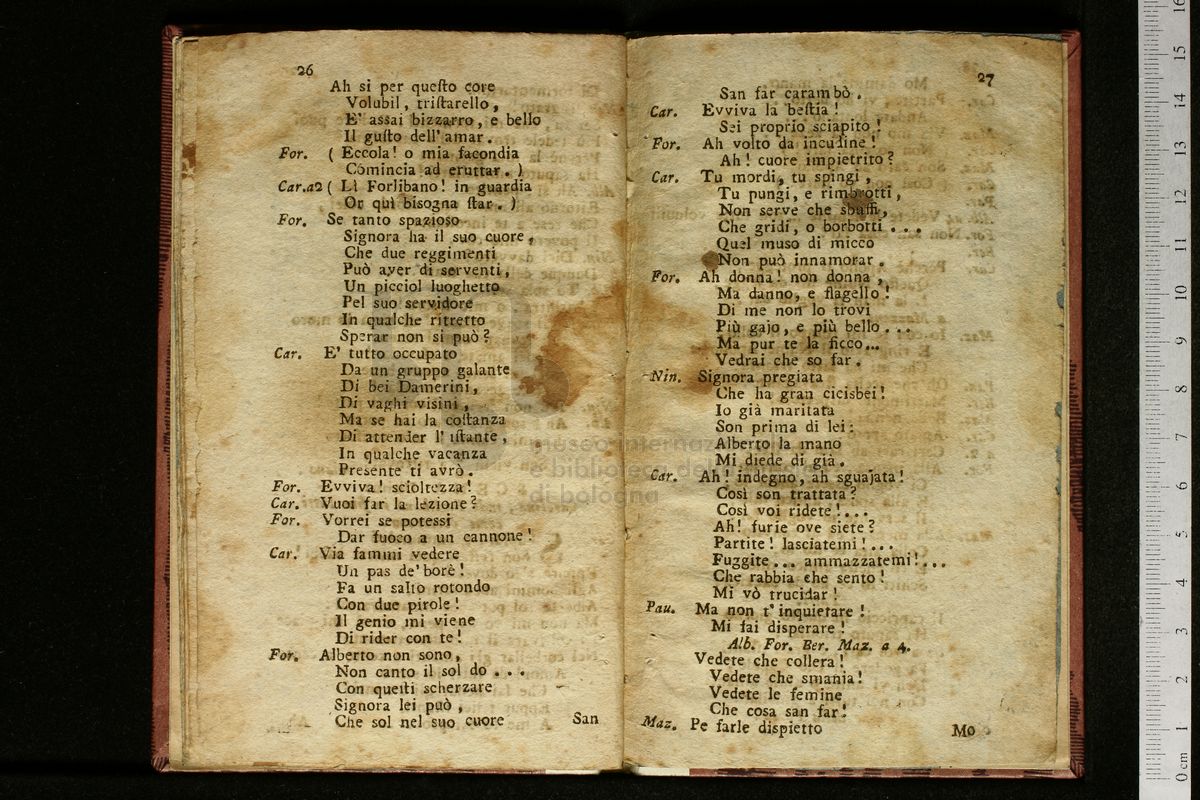 26
Ah si per queſto core
Volubil, triſtarello,
E' assai bizzarro, e bello
Il guſto dell'amar.
For. ( Eccola! o mia facondia
Comincia ad eruttar. )
Car.a2 ( Lì Forlibano! in guardia
Or quì bisogna ſtar. )
For. Se tanto spazioso
Signora ha il suo cuore,
Che due reggimenti
Può aver di serventi,
Un picciol luoghetto
Pel suo servidore
In qualche ritretto
Sperar non si può?
Car. E' tutto occupato
Da un gruppo galante
Di bei Damerini,
Di vaghi visini,
Ma se hai la coſtanza
Di attender l' iſtante,
In qualche vacanza
Presente ti avrò.
For. Evviva! scioltezza!
Car. Vuoi far la lezione?
For. Vorrei se potessi
Dar fuoco a un cannone!
Car. Via fammi vedere
Un pas de' borè!
Fa un salto rotondo
Con due pirole!
Il genio mi viene
Di rider con te!
For. Alberto non sono,
Non canto il sol do . . .
Con queſti scherzare
Signora lei può,
Che sol nel suo cuore
San
27
San far carambò.
Car. Evviva la beſtia!
Sei proprio sciapito!
For. Ah volto da incudine!
Ah! cuore impietrito?
Car. Tu mordi, tu spingi,
Tu pungi, e rimbrotti,
Non serve che sbuffi,
Che gridi, o borbotti . . .
Quel muso di micco
Non può innamorar.
For. Ah donna! non donna,
Ma danno, e flagello!
Di me non lo trovi
Più gajo, e più bello . . .
Ma pur te la ficco...
Vedrai che so far.
Nin. Signora pregiata
Che ha gran cicisbei!
Io già maritata
Son prima di lei:
Alberto la mano
Mi diede di già.
Car. Ah! indegno, ah sguajata!
Così son trattata?
Così voi ridete!...
Ah! furie ove siete?
Partite! lasciatemi!...
Fuggite... ammazzatemi!...
Che rabbia che sento!
Mi vò trucidar!
Pau. Ma non t'inquietare!
Mi fai disperare!
Alb. For. Ber. Maz. a 4.
Vedete che collera!
Vedete che smania!
Vedete le femine
Che cosa san far!
Maz. Pe farle dispietto
Mo